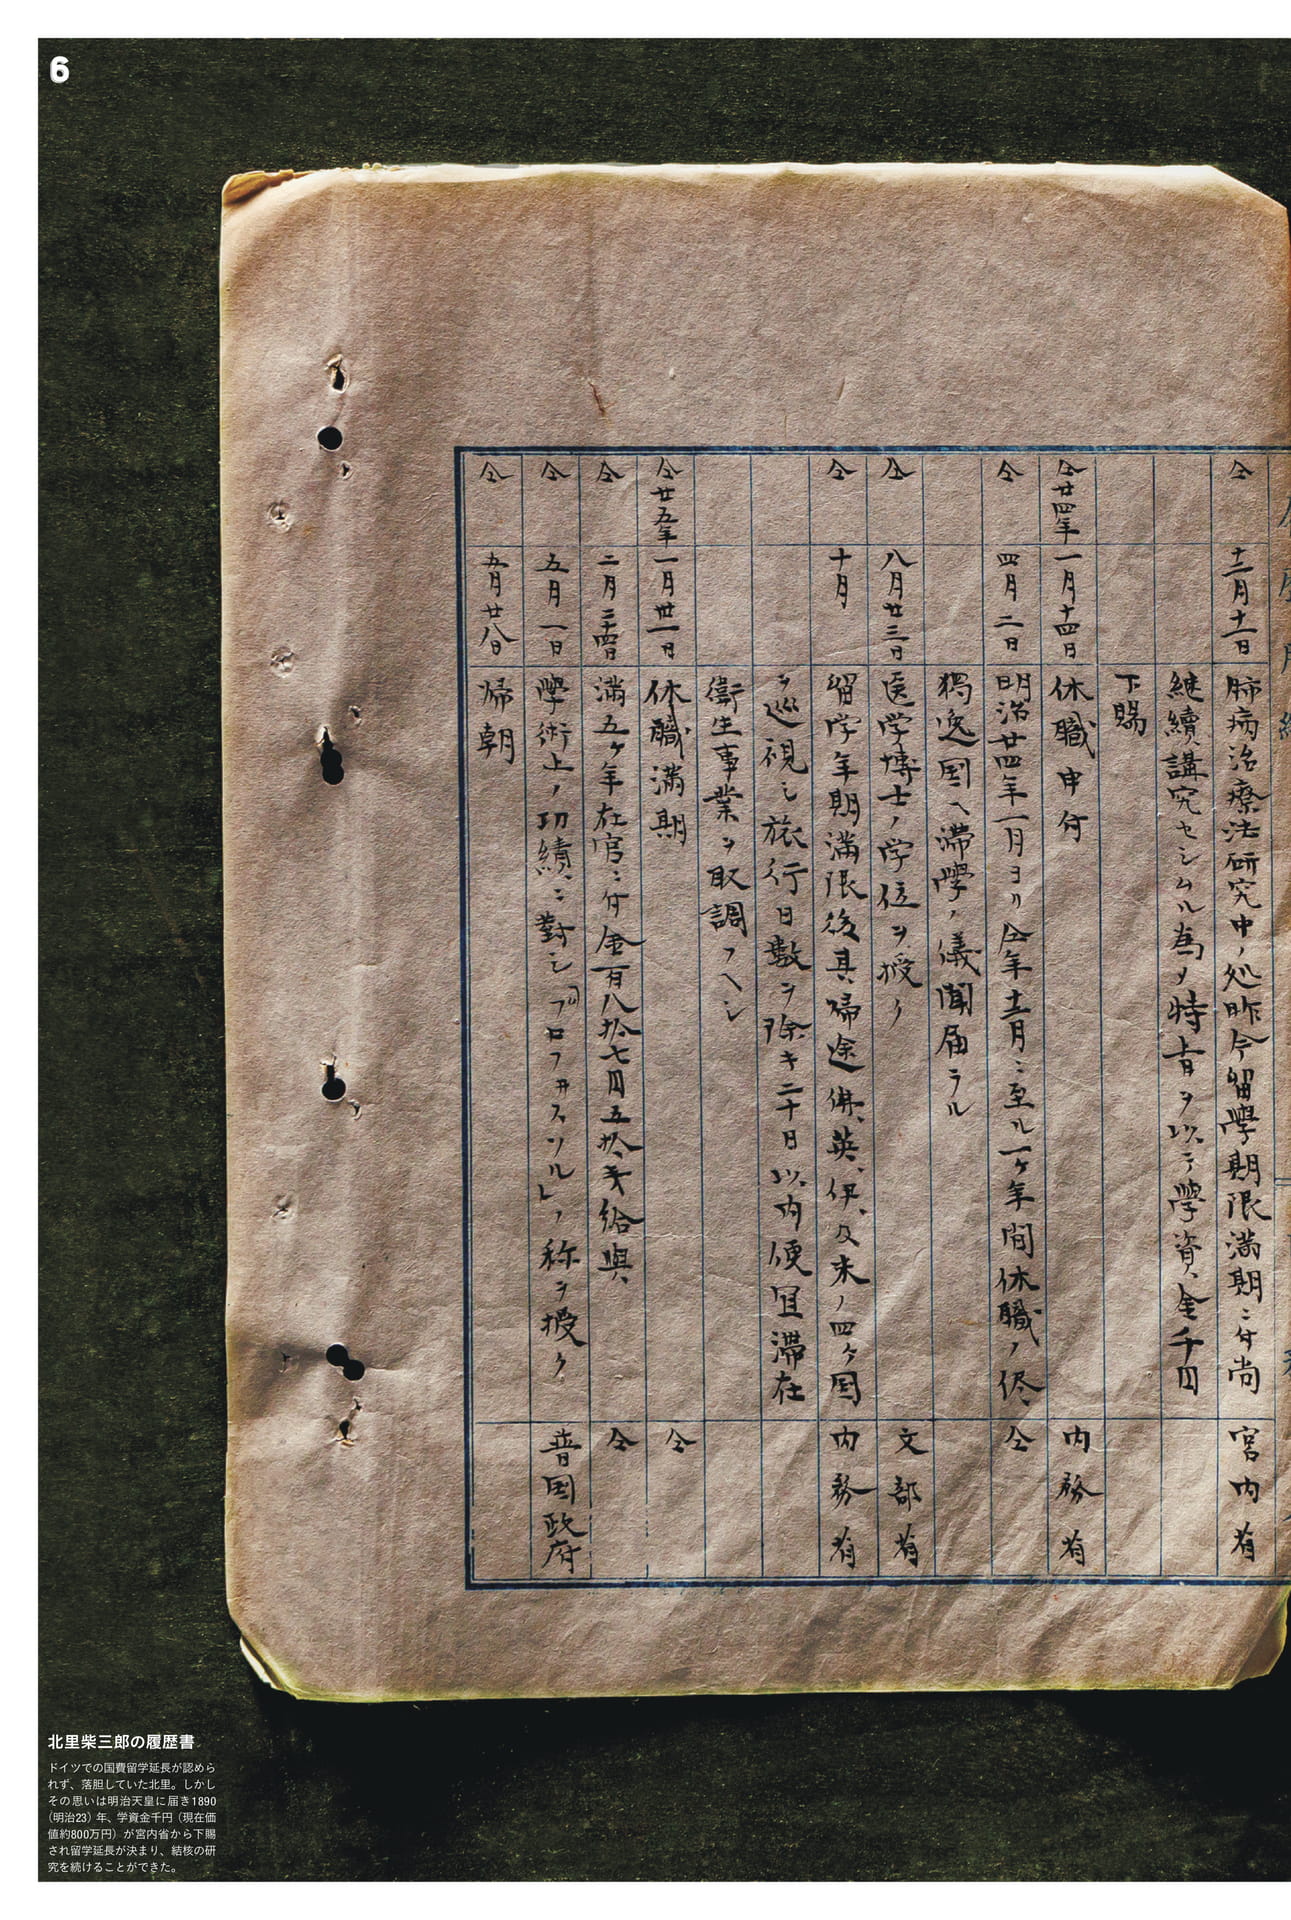 6
仝 十二月十一日 肺病治療法研究中ノ処昨今留學期限満期ニ付尚 宮内省
継續講究セシムル為メ特旨ヲ以テ學資金千円
下賜
仝廿四年 一月十四日 休職申付 内務省
仝 四月二日 明治廿四年一月ヨリ仝年十二月ニ至ル一ケ年間休職ノ侭 仝
獨逸国ヘ滞學ノ儀聞届ラル
仝 八月廿三日 医学博士ノ学位ヲ授ク 文部省
仝 十月 留学年期満限後其帰途佛、英、伊、及米ノ四ケ国 内務省
ヲ巡視シ旅行日數ヲ除キ二十日以内便宜滞在
衛生事業ヲ取調フヘシ
仝廿五年 一月卅一日 休職満期 仝
仝 二月二十四日 満五ケ年在官ニ付金百八拾七円五拾銭給與 仝
仝 五月一日 學術上ノ功績ニ對シ「プロフェスソル」ノ称ヲ授ク 普国政府
仝 五月廿八日 帰朝
北里柴三郎の履歴書
ドイツでの国費留学延長が認めら
れず、落胆していた北里。しかし
その思いは明治天皇に届き1890
（明治23）年、学資金千円（現在価
値約800万円）が宮内省から下賜
され留学延長が決まり、結核の研
究を続けることができた。